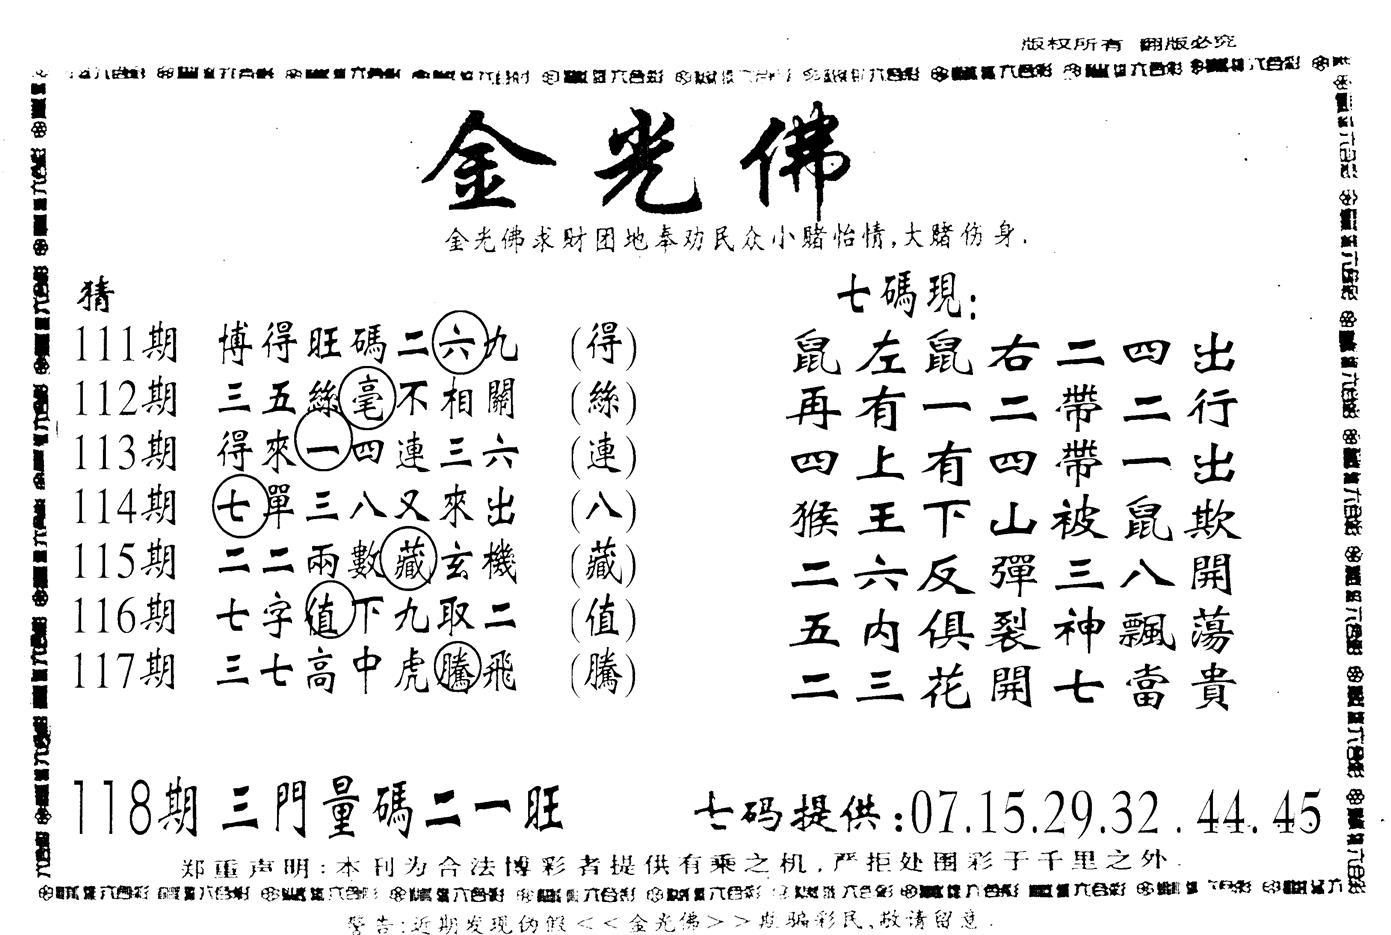 版权所有 翻版必究
金光佛
金光佛求财团地奉劝民众小赌怡情,大赌伤身.
猜
111期 博得旺碼二六九 (得)
112期 三五絲毫不相關 (絲)
113期 得來一四連三六 (連)
114期 七單三八又來出 (八)
115期 二二兩數藏玄機 (藏)
116期 七字值下九取二 (值)
117期 三七高中虎騰飛 (騰)
七碼現:
鼠左鼠右二四出
再有一二帶二行
四上有四帶一出
猴王下山被鼠欺
二六反彈三八開
五内俱裂神飄蕩
二三花開七當貴
118期 三門量碼二一旺
七码提供:07.15.29.32.44.45
郑重声明:本刊为合法博彩者提供有乘之机,严拒处围彩于千里之外.
警告:近期发现伪假<<金光佛>>欺骗彩民,敬请留意.